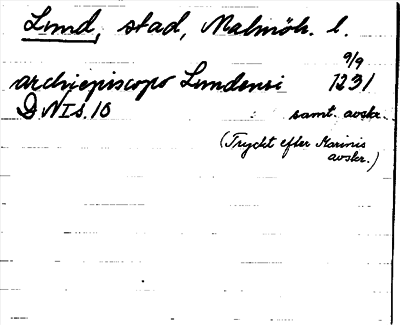 Lund, stad, Malmöh. l.
9/9
archiepiscopo Lundensi 1231
D N I s. 10 samt. avskr.
(Tryckt efter Marinis
avskr.)